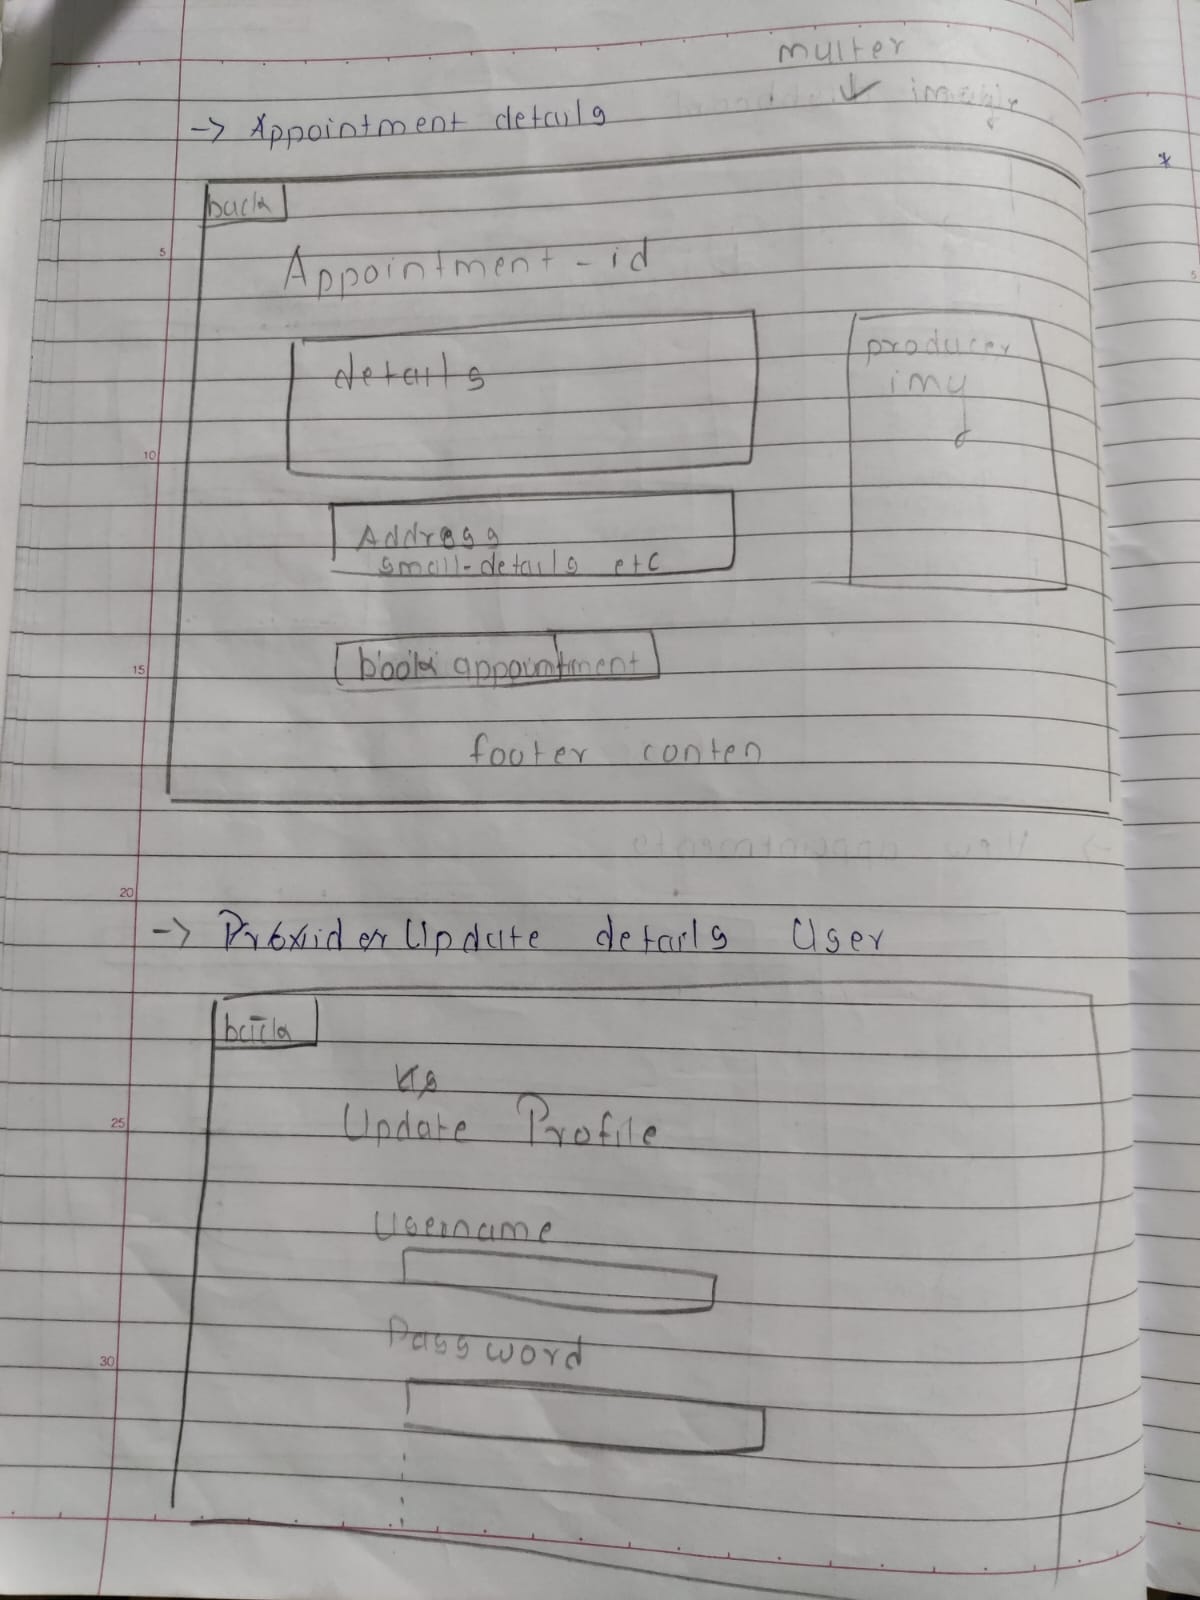 multer
↓ image
-> Appointment details
*
back
Appointment - id
5
5
details
producer
img
10
Address
small-details etc
book appointment
15
footer conten
20
-> Provider Update details User
back
Update Profile
25
Username
Password
30